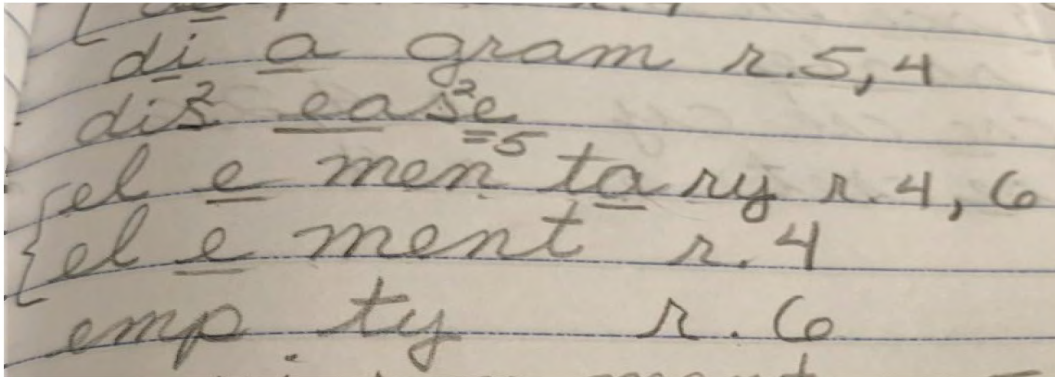 di a gram r. 5, 4
dis² ease² 5
el e men ta ry r. 4, 6
el e ment r. 4
emp ty r. 6